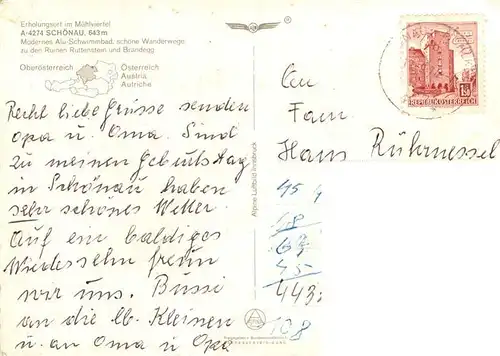 Erholungsort im Mühlviertel
A-4274 SCHÖNAU, 643 m
Modernes Alu-Schwimmbad, schöne Wanderwege
zu den Ruinen Ruttenstein und Brandegg
Oberösterreich
Österreich
Austria
Autriche
Recht liebe Grüsse senden
Opa u. Oma. Sind
zu meinen Geburtstag
in Schönau haben
sehr schönes Wetter.
Auf ein baldiges
Wiedersehn freun
wir uns. Bussi
an die lb. Kleinen
u. an Oma u Opa
Alpine Luftbild Innsbruck
®
REPUBLIK ÖSTERREICH
An
Fam.
Hans
45
18
63
45
443
108